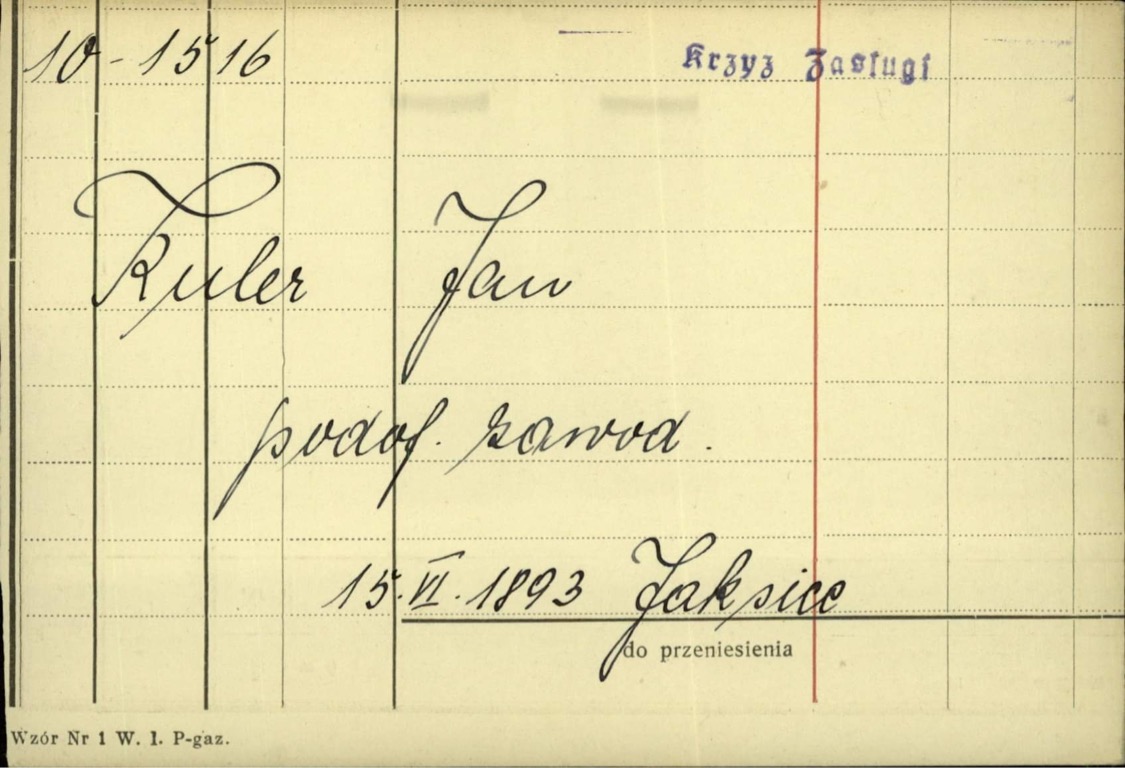 10-1516
Krzyż Zasługi
Kuler Jan
podof. zawod.
15.VI.1893 Jaksice
do przeniesienia
Wzór Nr 1 W. I. P-gaz.